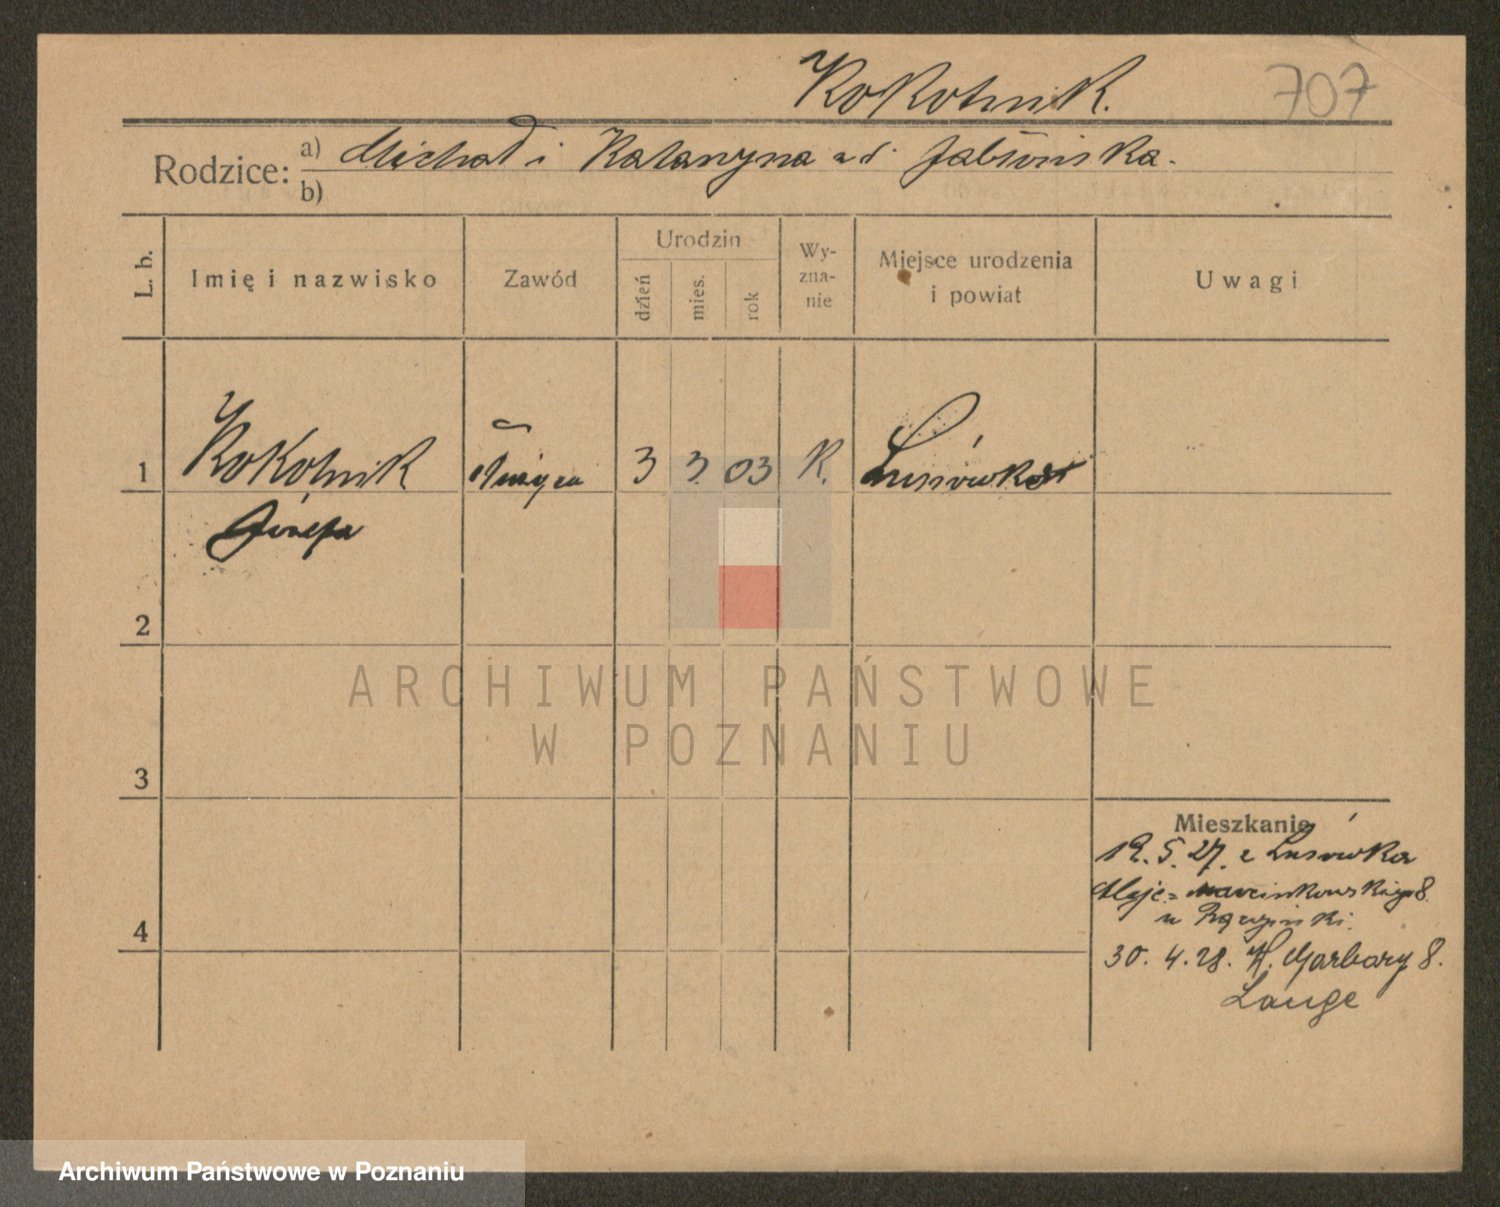 Kokotnik.
707
Rodzice: a) Michał i Katarzyna z d. Jabłońska.
b)
L. b.
Imię i nazwisko
Zawód
Urodzin
dzień
mies.
rok
Wy-
zna-
nie
Miejsce urodzenia
i powiat
Uwagi
1
Kokotnik
Józefa
3
3
03
K.
Lusówko
2
3
4
Mieszkanie
19. 5. 27. z Lusówka
Marcinkowskiego 8.
u
30. 4. 28. W. Garbary 8.
Lange
ARCHIWUM PAŃSTWOWE
W POZNANIU
Archiwum Państwowe w Poznaniu